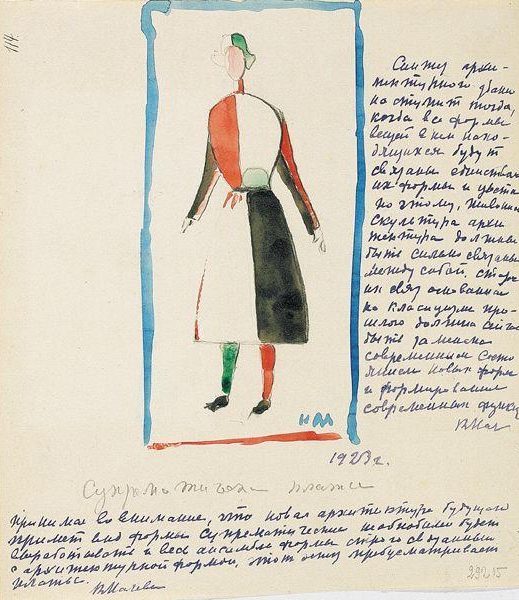 114
Синтез архи-
тектурного здани
наступит тогда,
когда все формы
вещей в нем нахо-
дящихся будут
связаны единством
их формы и цвета
по этому, живопись
скульптура архи
тектура должны
быть сильно связаны
между собой.
связ основанная
на класицизме про-
шлого должна
быть заменена
современным состо
янием новых форм
и формирование
современная функц
КМ
1923 г.
платье
Принимая во внимание, что новая архитектура будущего
примет вид формы супрематические необходимо будет
выработать и весь ансамбль формы строго связанный
с архитектурной формой, этот эскиз предусматривает
платье.
КМалеви